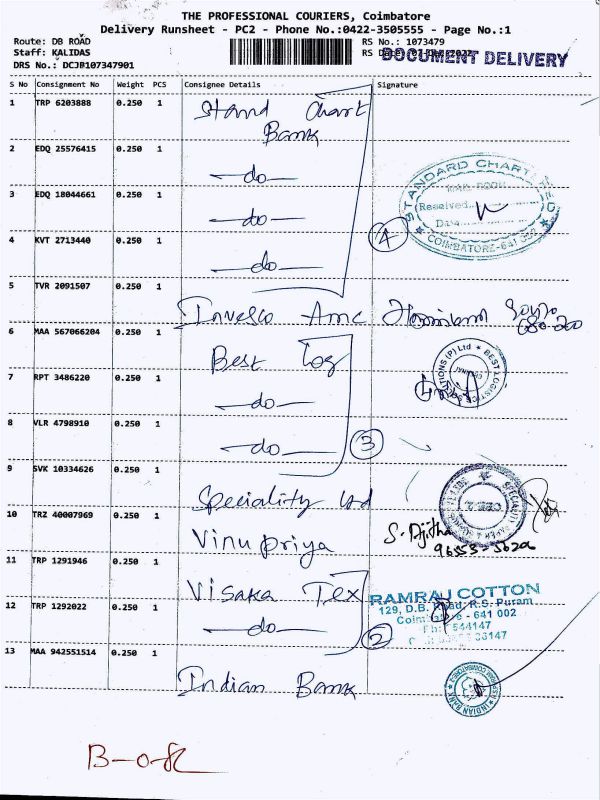 THE PROFESSIONAL COURIERS, Coimbatore
Delivery Runsheet - PC2 - Phone No.:0422-3505555 - Page No.:1
Route: DB ROAD
RS No.: 1073479
Staff: KALIDAS
RS
DOCUMENT DELIVERY
DRS No.: DCJB107347901
S No Consignment No Weight PCS Consignee Details Signature
1 TRP 6203888 0.250 1 Stand Chart
Bank
2 EDQ 25576415 0.250 1 —do—
3 EDQ 18044661 0.250 1 —do—
4 KVT 2713440 0.250 1 —do—
4
STANDARD CHARTERED
MAIL ROOM
Received
Date
COIMBATORE-641
5 TVR 2091507 0.250 1 Invesco Amc
6 MAA 567066204 0.250 1 Best Log
7 RPT 3486220 0.250 1 —do—
8 VLR 4798910 0.250 1 —do—
3
BEST LOGISTICS SOLUTIONS (P) Ltd
9 SVK 10334626 0.250 1 Speciality Ltd
10 TRZ 40007969 0.250 1 Vinupriya
S. Ajitha
11 TRP 1291946 0.250 1 Visaka Tex
12 TRP 1292022 0.250 1 —do—
2
RAMRAJ COTTON
129, D.B. Road, R.S. Puram
Coimbatore - 641 002
Ph: 544147
13 MAA 942551514 0.250 1 Indian Bank
INDIAN BANK